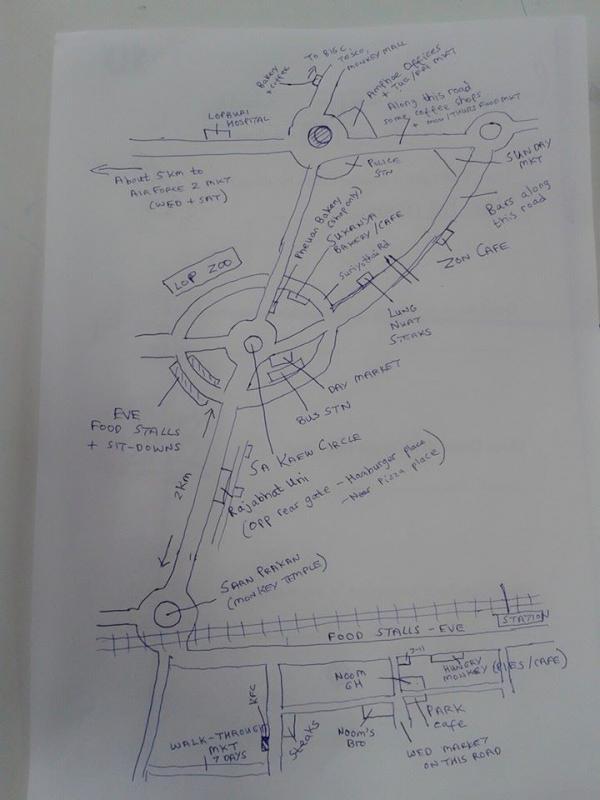 TO BIG C
TESCO,
MONKEY MALL
Bakery
+ coffee
Amphoe Offices
+ TUE/FRI MKT
Along this road
some coffee shops
+ MON/THURS FOOD MKT
LOPBURI
HOSPITAL
POLICE
STN
SUNDAY
MKT
About 5 km to
AIRFORCE 2 MKT
(WED + SAT)
Bars along
this road
Bakery (shop only)
SUKANYA
BAKERY/CAFE
ZON CAFE
LOP ZOO
LUNG
NUAT
STEAKS
DAY MARKET
BUS STN
EVE
FOOD STALLS
+ SIT-DOWNS
SA KAEW CIRCLE
2 km
Rajabhat Uni
(OPP rear gate - Hamburger place
- Near Pizza place)
SAAN PRAKAN
(MONKEY TEMPLE)
STATION
FOOD STALLS - EVE
7-11
HUNGRY
MONKEY (PIES/CAFE)
NOOM
GH
KFC
PARK
cafe
WALK-THROUGH
MKT
7 DAYS
Steaks
NOOM'S
BRO
WED MARKET
ON THIS ROAD